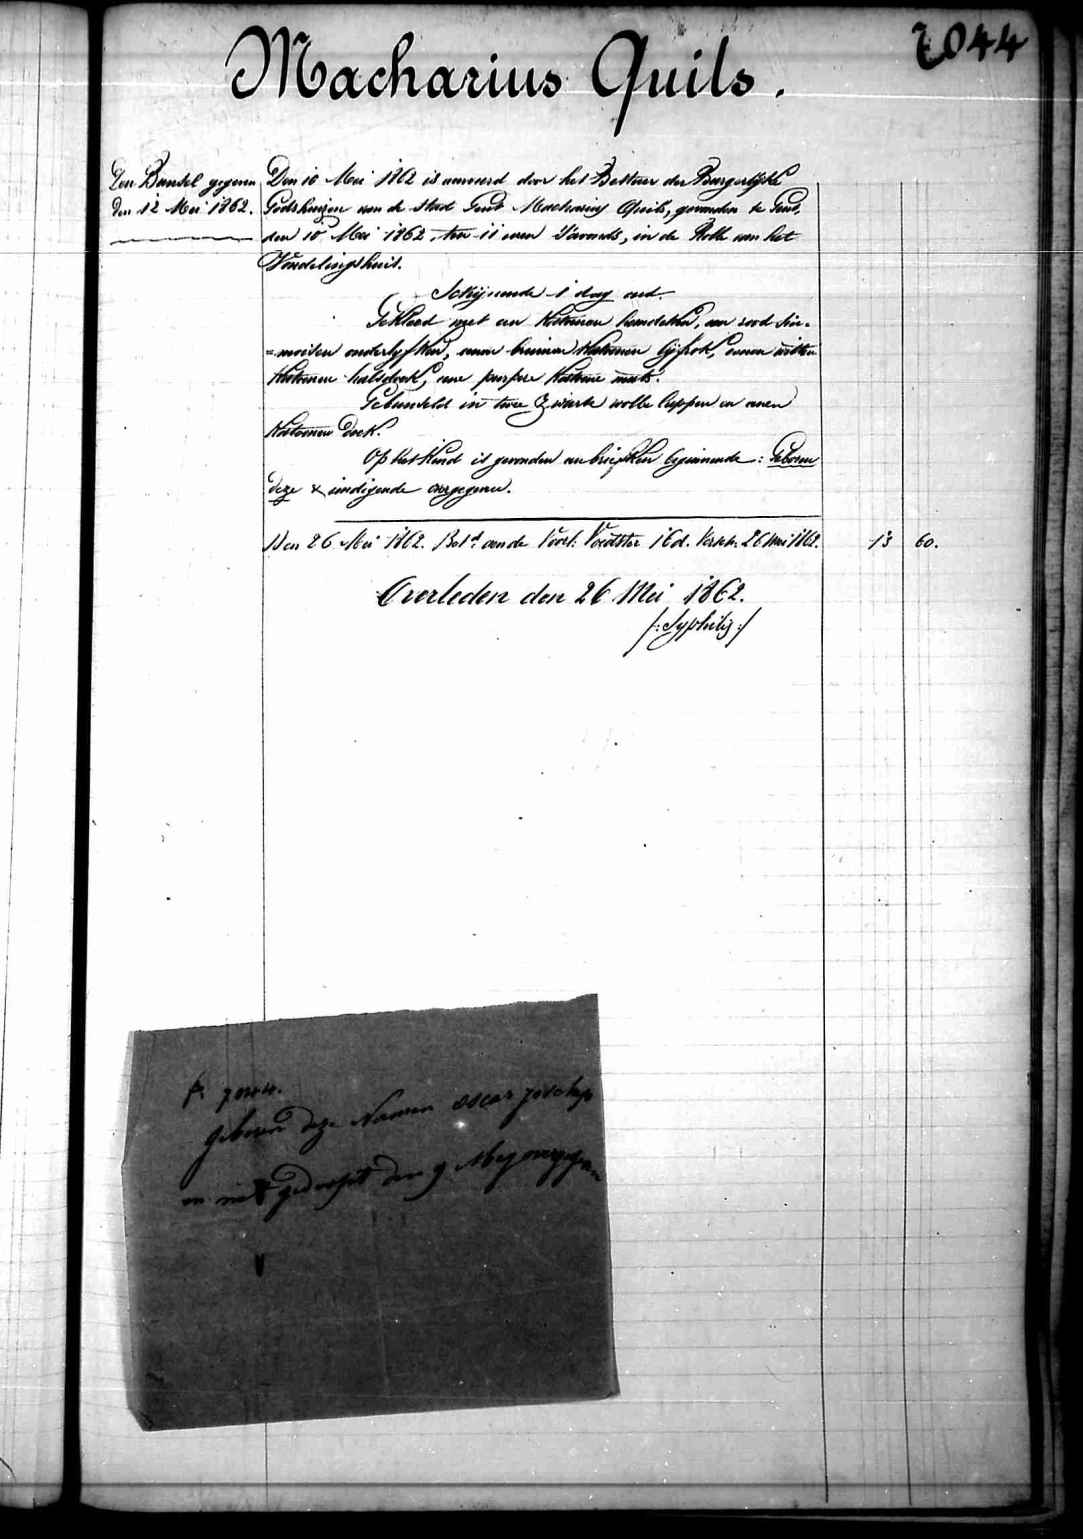 7044
Macharius Quils.
Den Bundel gegeven
den 12 Mei 1862.
Den 10 Mei 1862 is aanveerd door het Bestuur der Burgerlijke
Godshuizen van de stad Gent Macharius Quils, gevonden te Gent,
den 10 Mei 1862, ten 11 uren 's avonds, in de Rolle van het
Vondelingshuis.
Schijnende 1 dag oud.
Gekleed met een katoenen hemdeken, een rood
onderlyfken, eenen bruinen katoenen lijfrok, eenen witten
katoenen halsdoek, eene purpere katoene muts.
Gebundeld in twee zwarte wolle lappen en eenen
katoenen doek.
Op het kind is gevonden een briefken beginnende: Geboren
deze & eindigende aengegeven.
Den 26 Mei 1862. Bet.d aan de Voorl. Voedster 16 d. Verstr. 26 Mei 1862. 13 60.
Overleden den 26 Mei 1862.
/: Syphilis :/
7044.
geboren deze Namen oscar joseph
en niet gedoopt den 9 Mey